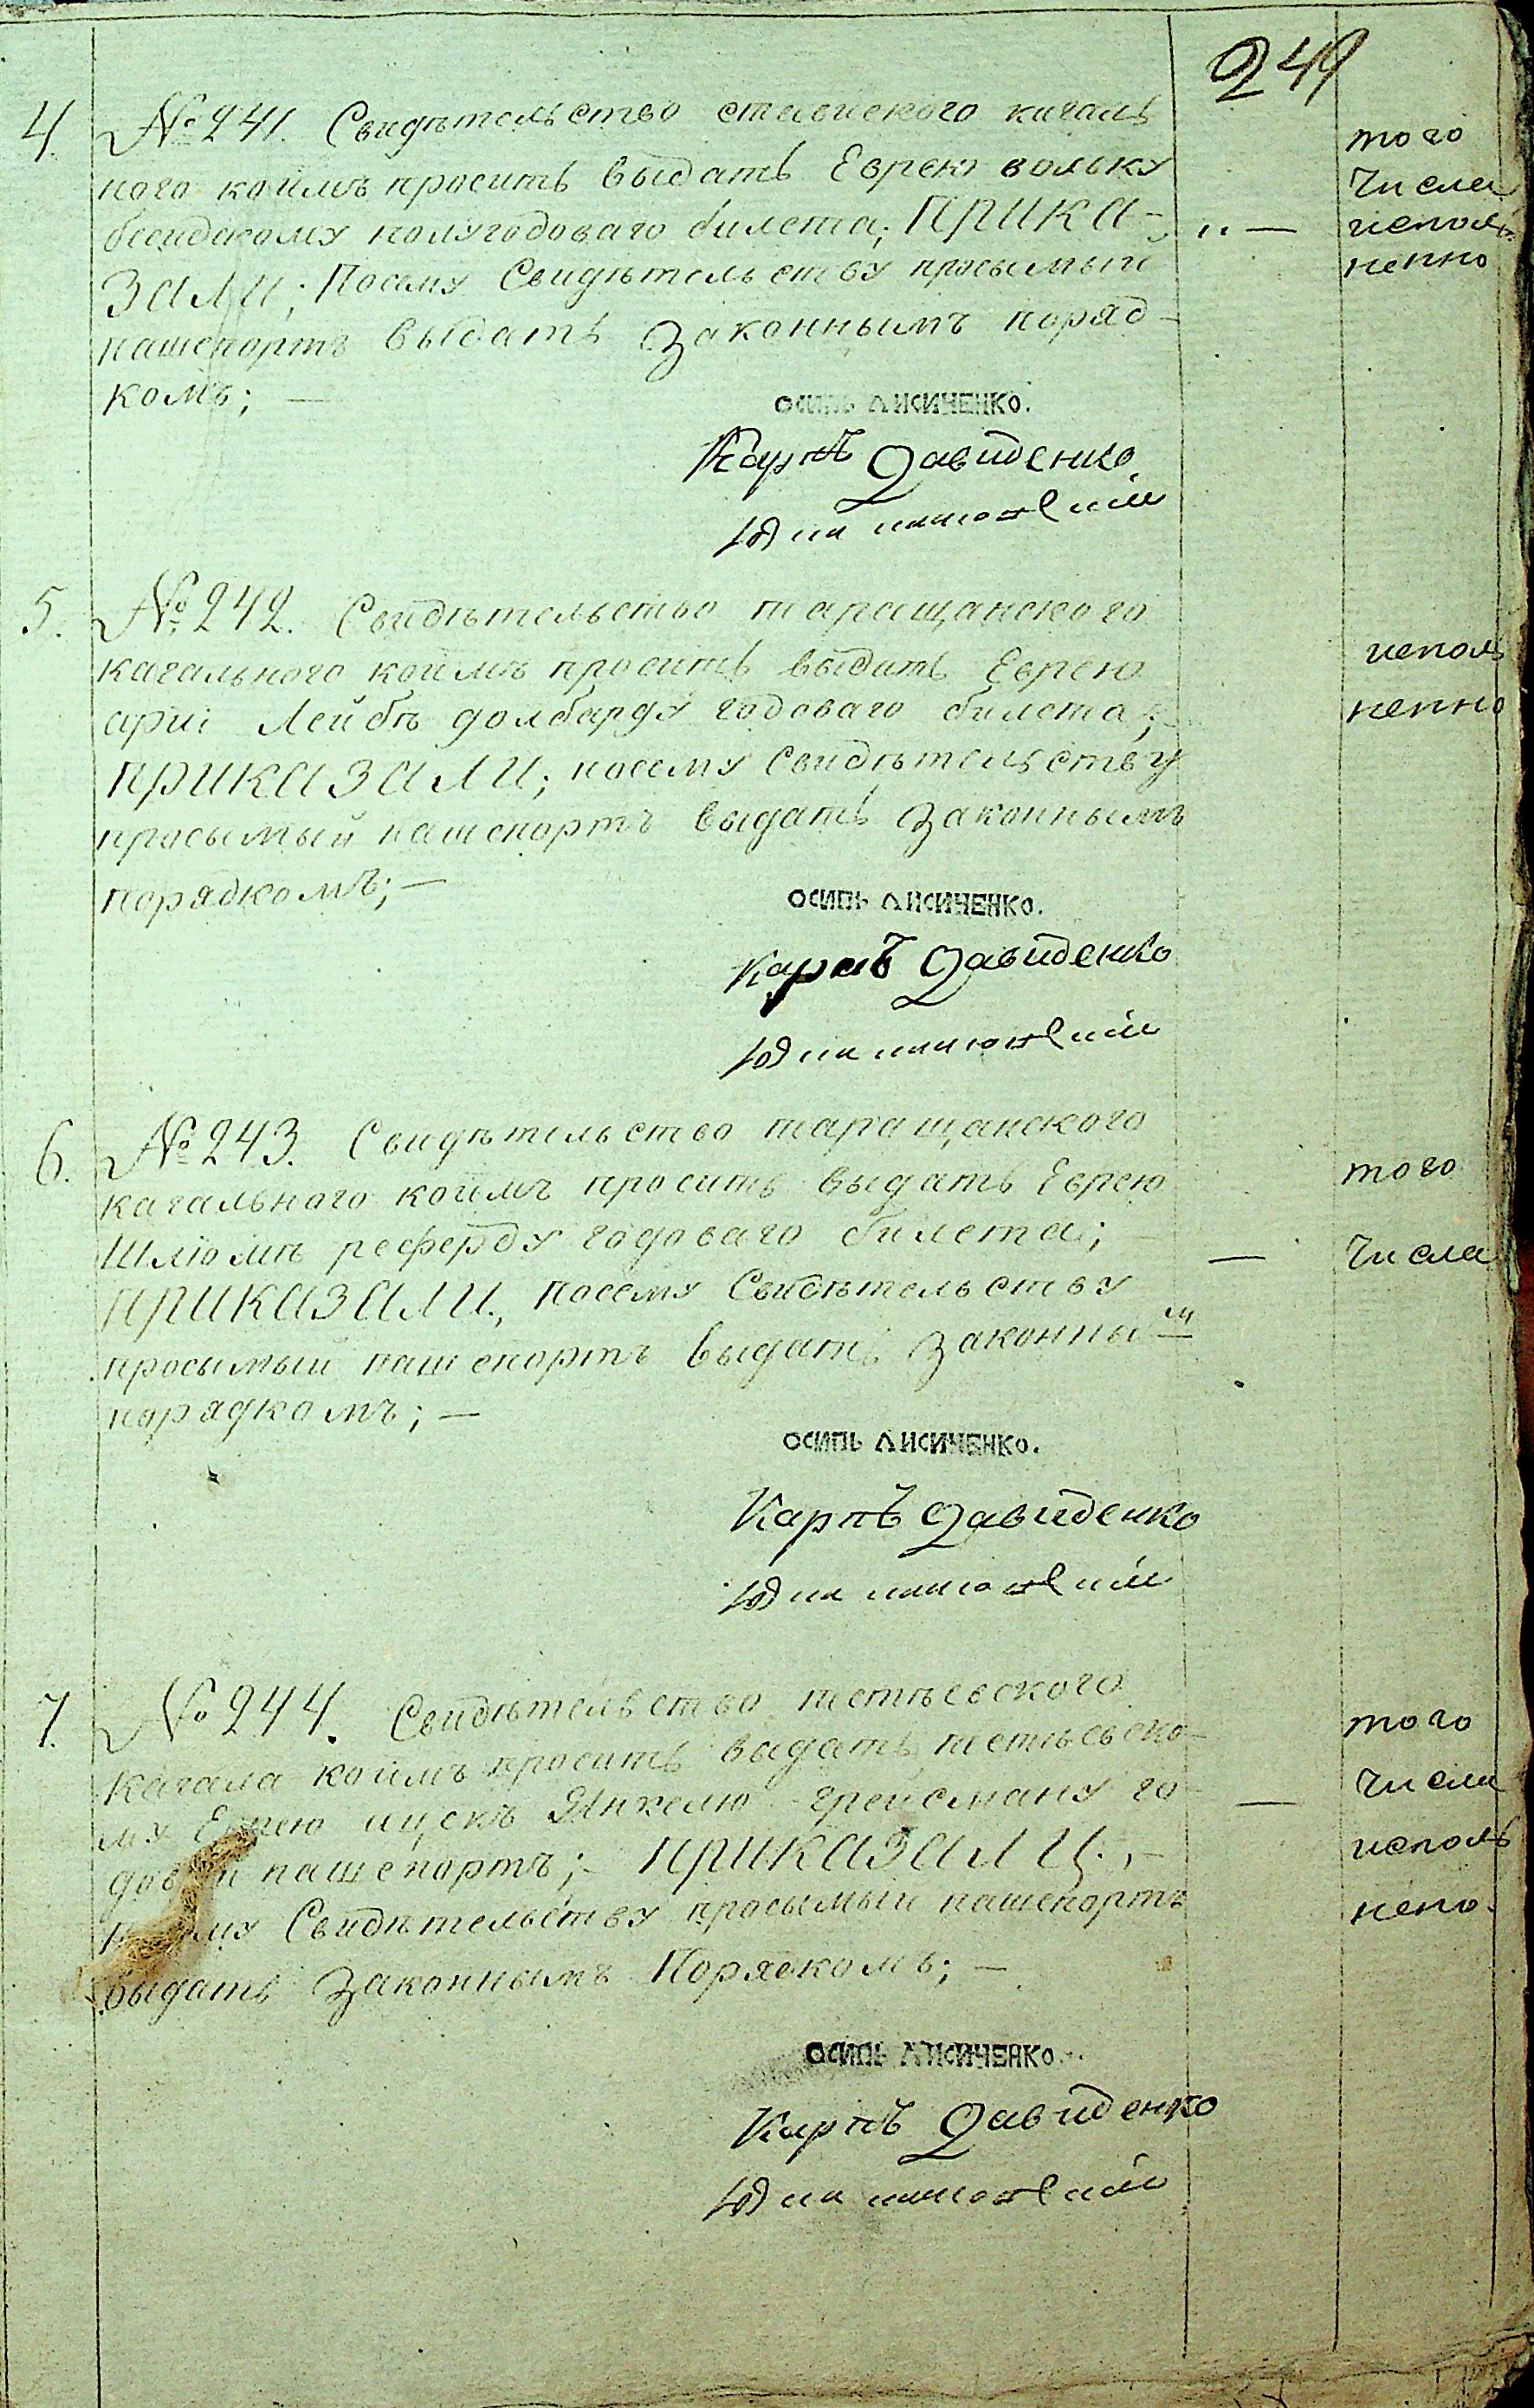 249
4.
№ 241. Свидѣтельство ставиского кагаль
ного коимъ проситъ выдать Еврею вольку
полугодоваго билета; ПРИКА-
ЗАЛИ; Посему Свидѣтельству просымый
пашепортъ выдать Законнымъ поряд-
комъ; —
того
числа
исполь
ненно
ОСИПЬ ЛИСИЧЕНКО.
Карпъ Давиденко
5.
№ 242. Свидѣтельство таращанского
кагального коимъ проситъ выдать Еврею
ариі Лейбѣ долбарду годоваго билета;
ПРИКАЗАЛИ; посему Свидѣтельству
просымый пашепортъ выдать Законнымъ
порядкомъ; —
исполь
ненно
ОСИПЬ ЛИСИЧЕНКО.
Карпъ Давиденко
6.
№ 243. Свидѣтельство таращанского
кагального коимъ проситъ выдать Еврею
Шлюмѣ реферду годоваго билета;
ПРИКАЗАЛИ; посему Свидѣтельству
просымый пашепортъ выдать Законным
порядкомъ; —
того
числа
ОСИПЬ ЛИСИЧЕНКО.
Карпъ Давиденко
7.
№ 244. Свидѣтельство тетѣевского
Кагала коимъ проситъ выдать тетѣевско-
му Еврею ицскъ Янкелю грейсману го-
довой пашепортъ; - ПРИКАЗАЛИ; -
му Свидѣтельству просымый пашепортъ
выдать Законнымъ Порядкомъ; —
того
числа
исполь
нено.
ОСИПЬ ЛИСИЧЕНКО.
Карпъ Давиденко